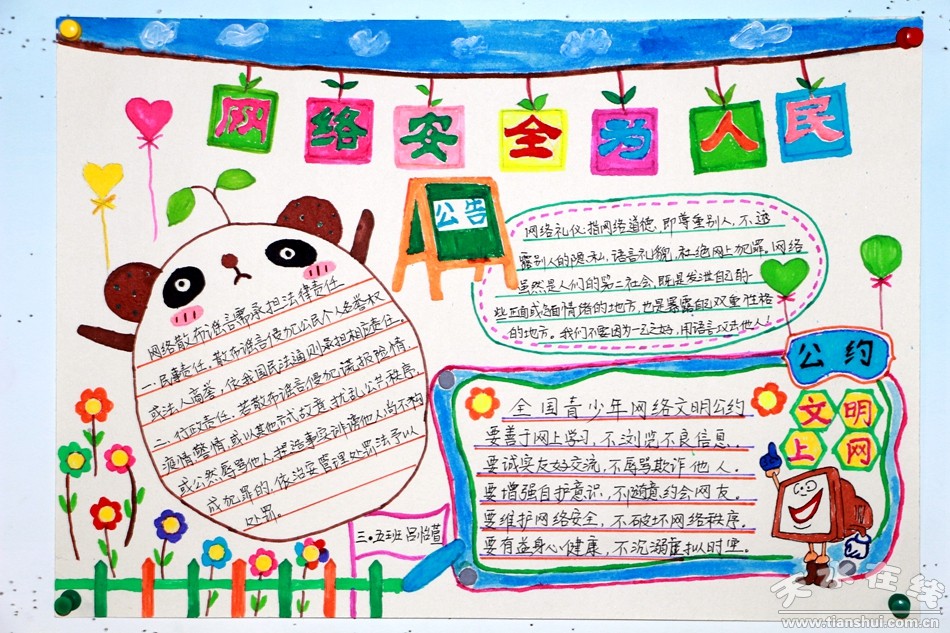 网络安全为人民
公告
网络礼仪：指网络道德，即尊重别人，不透
露别人的隐私，语言礼貌，杜绝网上犯罪。网络
虽然是人们的第二社会，既是发泄自己的一
些正面或负面情绪的地方，也是暴露自己双重性格
的地方。我们不要因为一己之好，用语言攻击他人！
网络散布谣言需承担法律责任
一、民事责任。散布谣言侵犯公民个人名誉权
或法人商誉，依我国民法通则承担相应责任。
二、行政责任。若散布谣言侵犯、谎报险情，
疫情警情，或以其他方式故意扰乱公共秩序，
或公然辱骂他人，捏造事实诽谤他人尚不构
成犯罪的，依治安管理处罚法予以
处罚。
三.五班 吕怡萱
公约
文明
上网
全国青少年网络文明公约
要善于网上学习，不浏览不良信息。
要诚实友好交流，不辱骂欺诈他人。
要增强自护意识，不随意约会网友。
要维护网络安全，不破坏网络秩序。
要有益身心健康，不沉溺虚拟时空。
天水在线
www.tianshui.com.cn